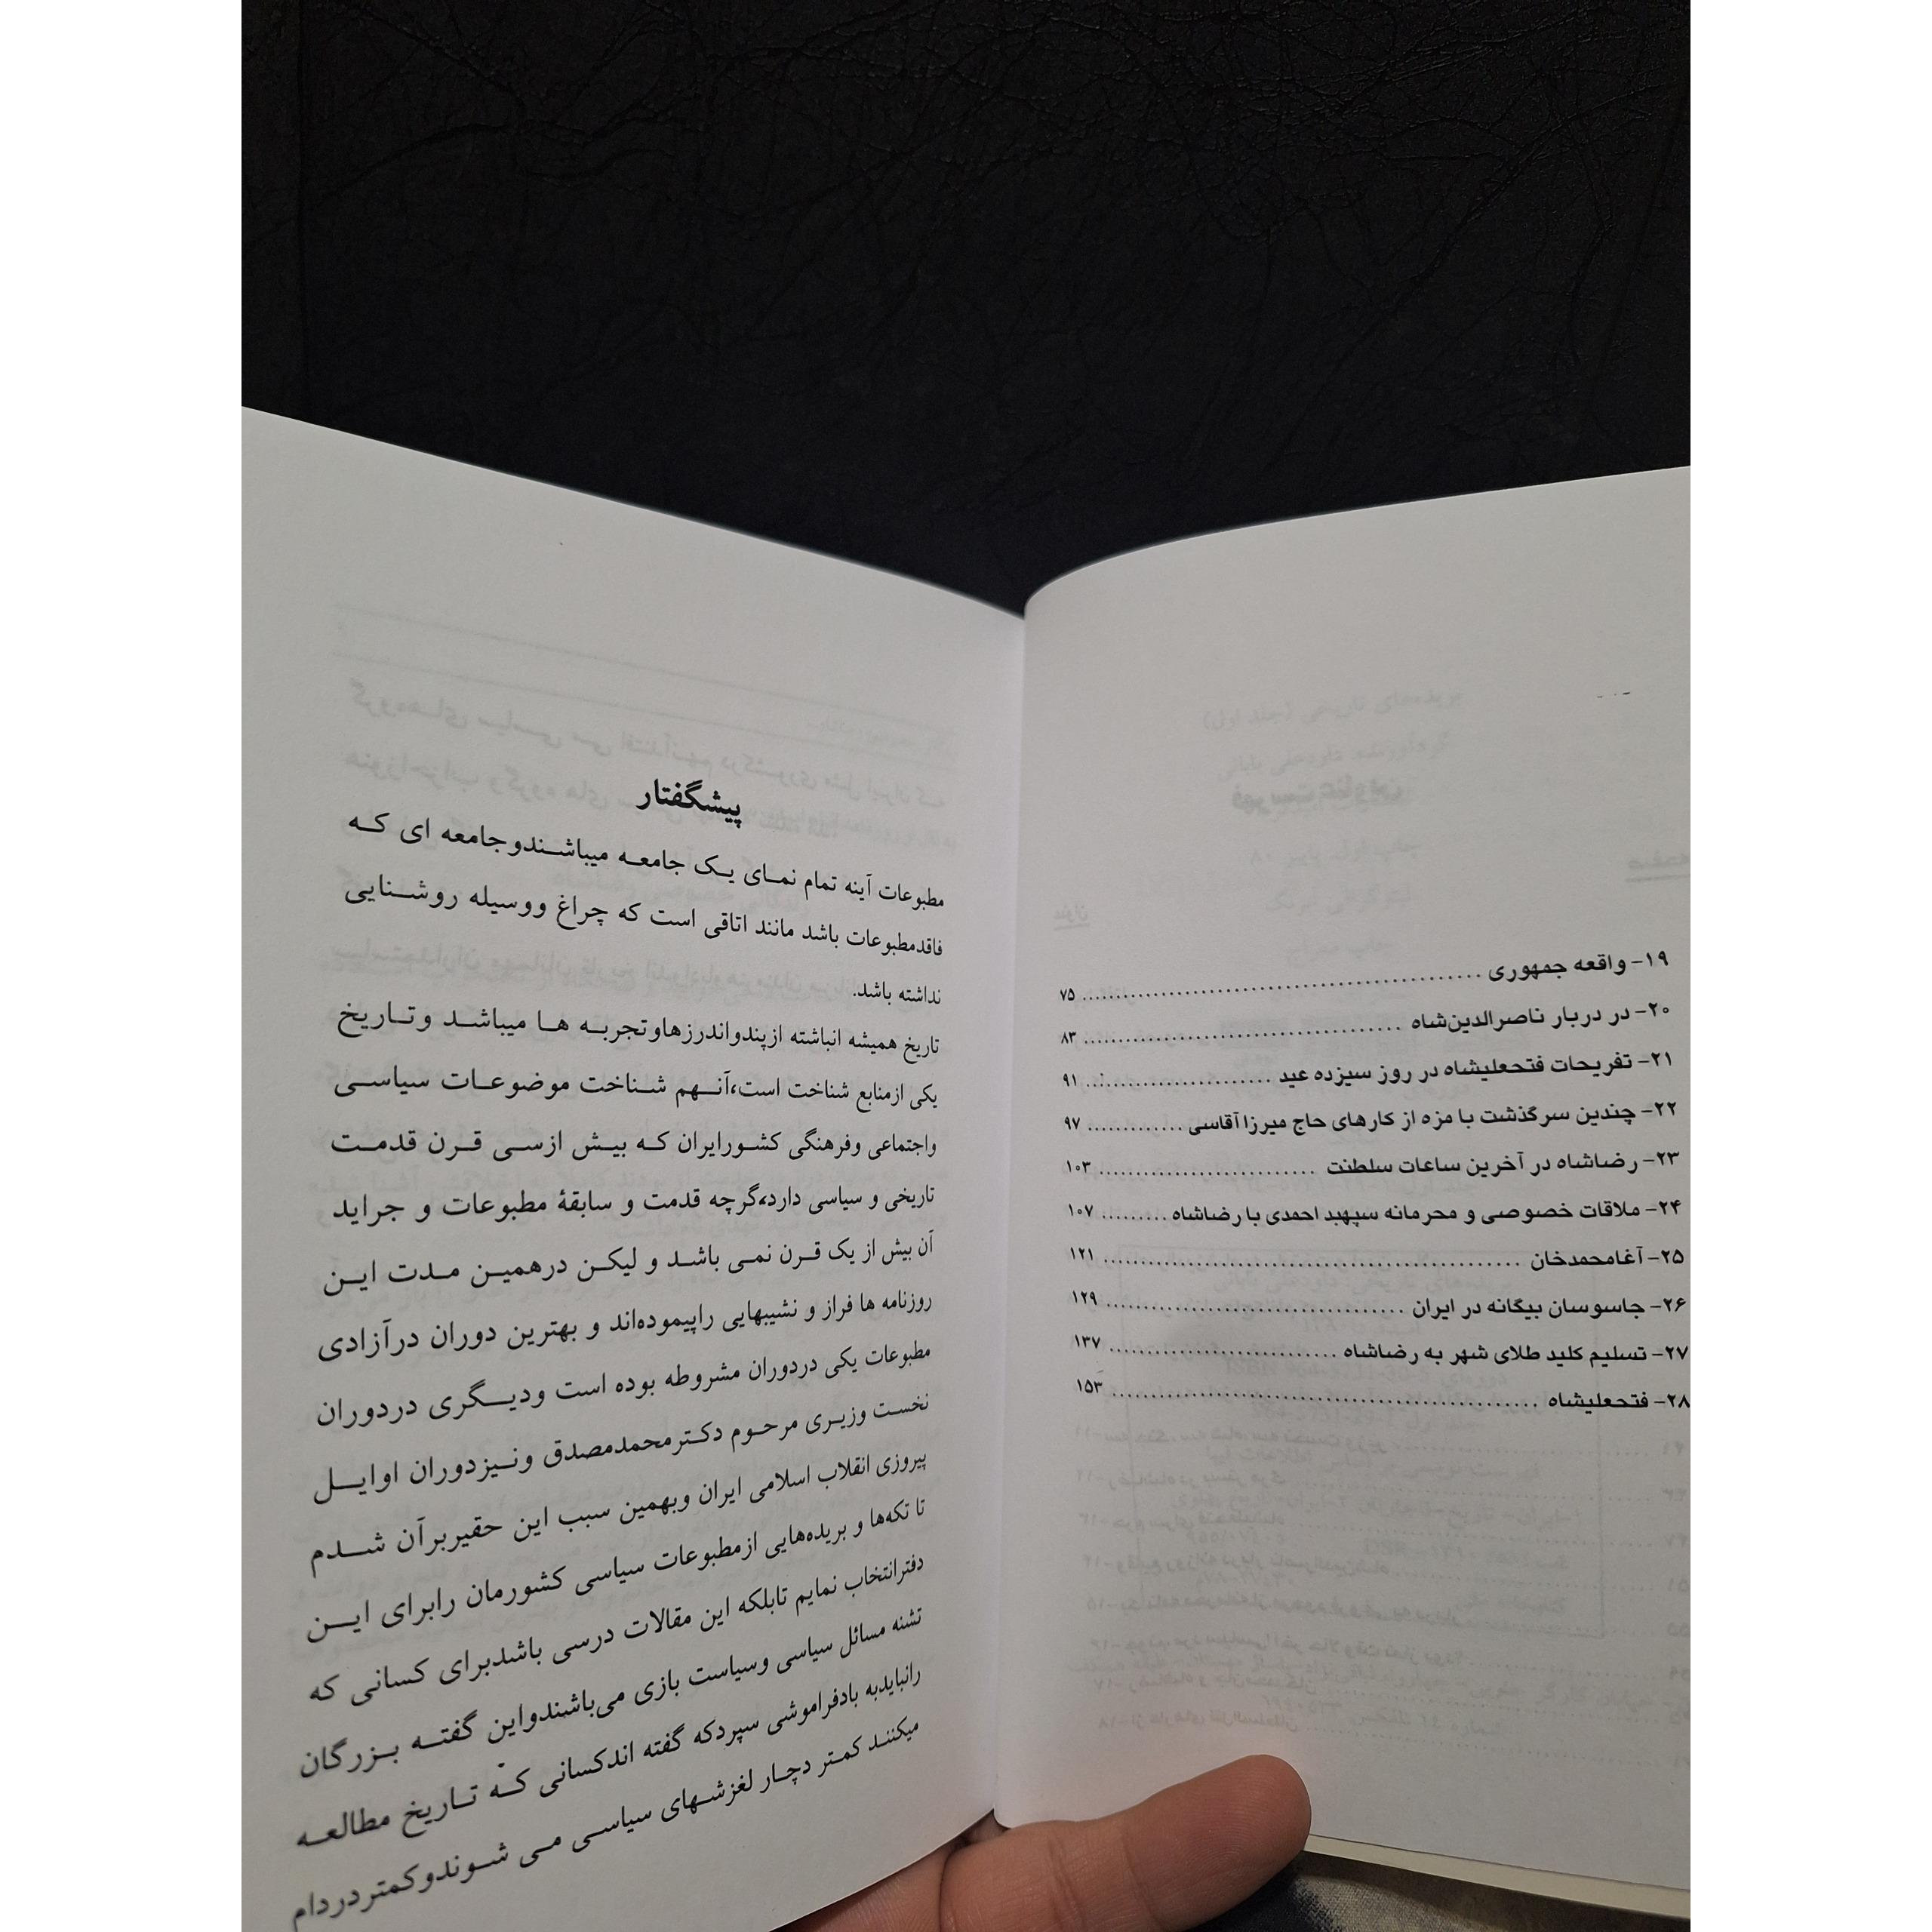 ۱۹- واقعه جمهوری ........ ۷۵
۲۰- در دربار ناصرالدین‌شاه ........ ۸۳
۲۱- تفریحات فتحعلیشاه در روز سیزده عید ........ ۹۱
۲۲- چندین سرگذشت با مزه از کارهای حاج میرزا آقاسی ........ ۹۷
۲۳- رضاشاه در آخرین ساعات سلطنت ........ ۱۰۳
۲۴- ملاقات خصوصی و محرمانه سپهبد احمدی با رضاشاه ........ ۱۰۷
۲۵- آغامحمدخان ........ ۱۲۱
۲۶- جاسوسان بیگانه در ایران ........ ۱۲۹
۲۷- تسلیم کلید طلای شهر به رضاشاه ........ ۱۳۷
۲۸- فتحعلیشاه ........ ۱۵۳
پیشگفتار
مطبوعات آینه تمام نمای یک جامعه میباشندوجامعه ای که
فاقدمطبوعات باشد مانند اتاقی است که چراغ ووسیله روشنایی
نداشته باشد.
تاریخ همیشه انباشته ازپندواندرزهاوتجربه ها میباشد وتاریخ
یکی ازمنابع شناخت است،آنهم شناخت موضوعات سیاسی
واجتماعی وفرهنگی کشورایران که بیش ازسی قرن قدمت
تاریخی و سیاسی دارد،گرچه قدمت و سابقهٔ مطبوعات و جراید
آن بیش از یک قرن نمی باشد و لیکن درهمین مدت این
روزنامه ها فراز و نشیبهایی راپیموده‌اند و بهترین دوران درآزادی
مطبوعات یکی دردوران مشروطه بوده است ودیگری دردوران
نخست وزیری مرحوم دکترمحمدمصدق ونیزدوران اوایل
پیروزی انقلاب اسلامی ایران وبهمین سبب این حقیربرآن شدم
تا تکه‌ها و بریده‌هایی ازمطبوعات سیاسی کشورمان رابرای این
دفترانتخاب نمایم تابلکه این مقالات درسی باشدبرای کسانی که
تشنه مسائل سیاسی وسیاست بازی می‌باشندواین گفته بزرگان
رانبایدبه بادفراموشی سپردکه گفته اندکسانی که تاریخ مطالعه
میکنند کمتر دچار لغزشهای سیاسی می شوندوکمتردردام